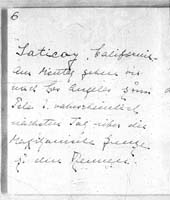 6
Saticoy, California.
Am Montag gehen wir
nach Los Angeles dann
Pela &. wahrscheinlich
nächsten Tag über die
Mexikanische Grenze
zu den Rennen.